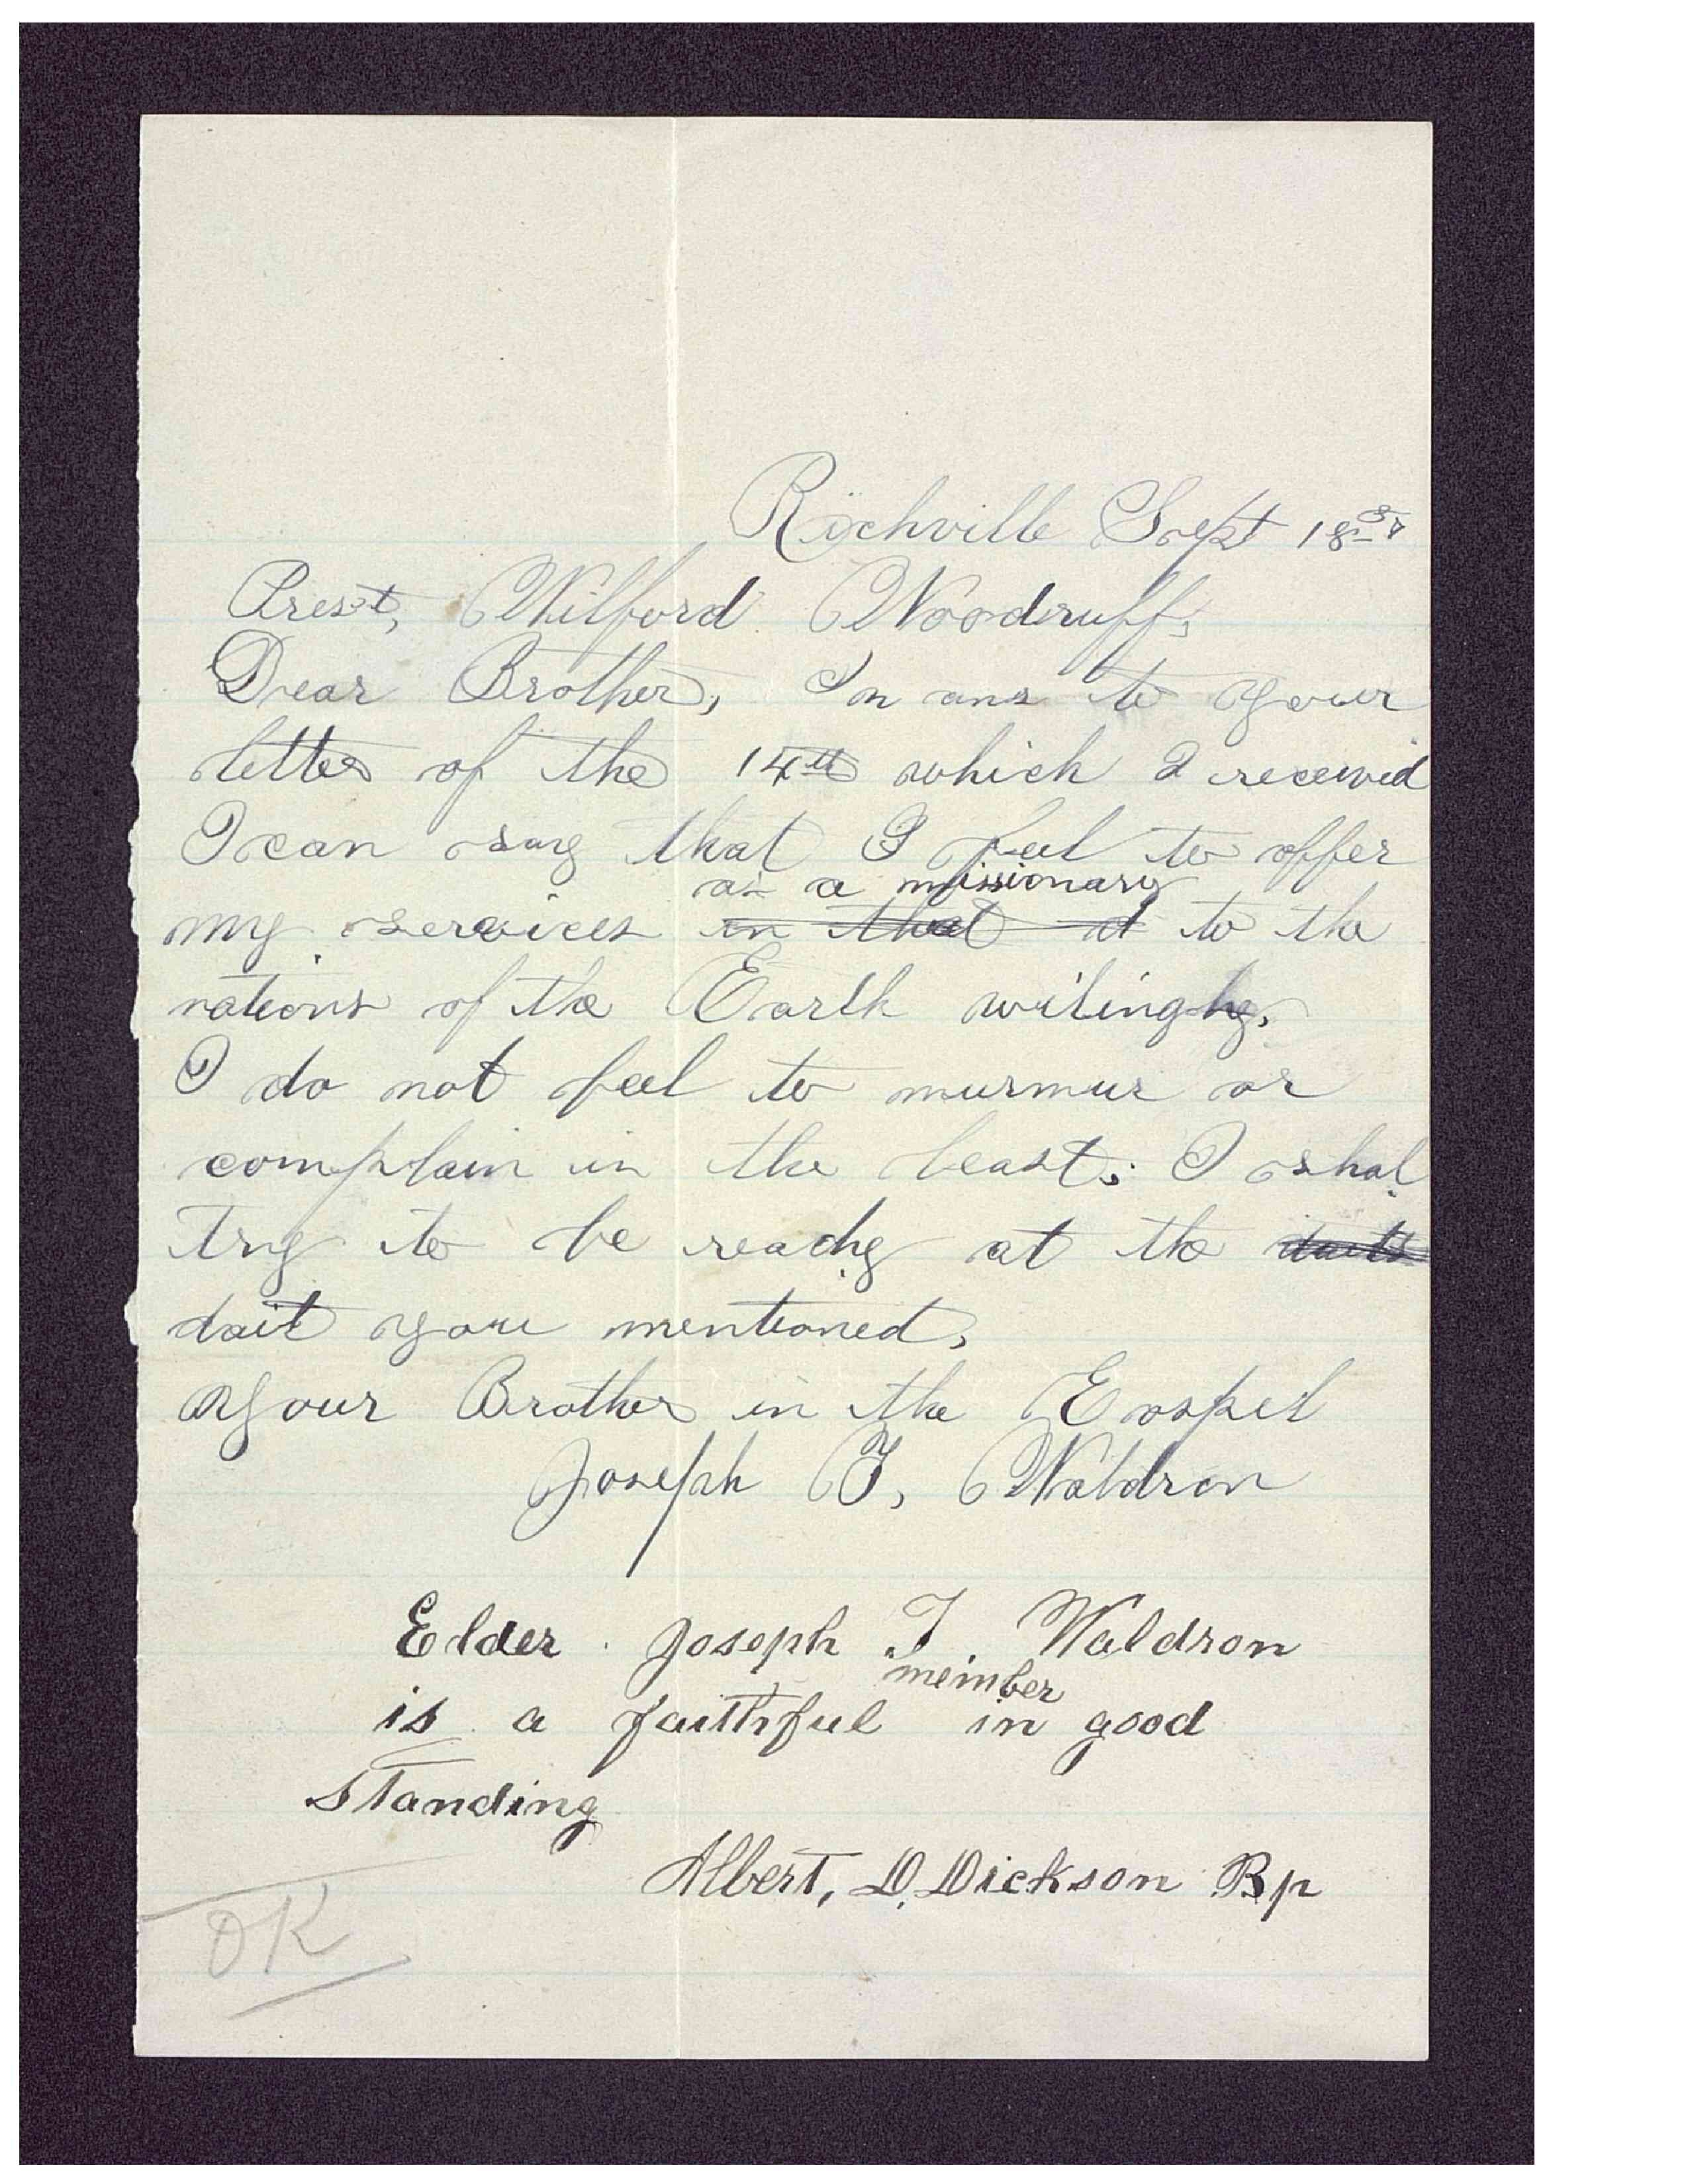 Richville Sept 18
Prest, Wilford Woodruff,
Dear Brother, In ans to your
letter of the 14th which I receivid
I can say that I feel to offer
as a missionary
my services in that at to the
nations of the Earth wilingly,
I do not feel to murmur or
complain in the least; I shal
try to be ready at the
dait you mentioned,
Your Brother in the Gospel
Joseph T, Waldron
Elder Joseph T. Waldron
member
is a faithful in good
standing
Albert, D. Dickson Bp
OK